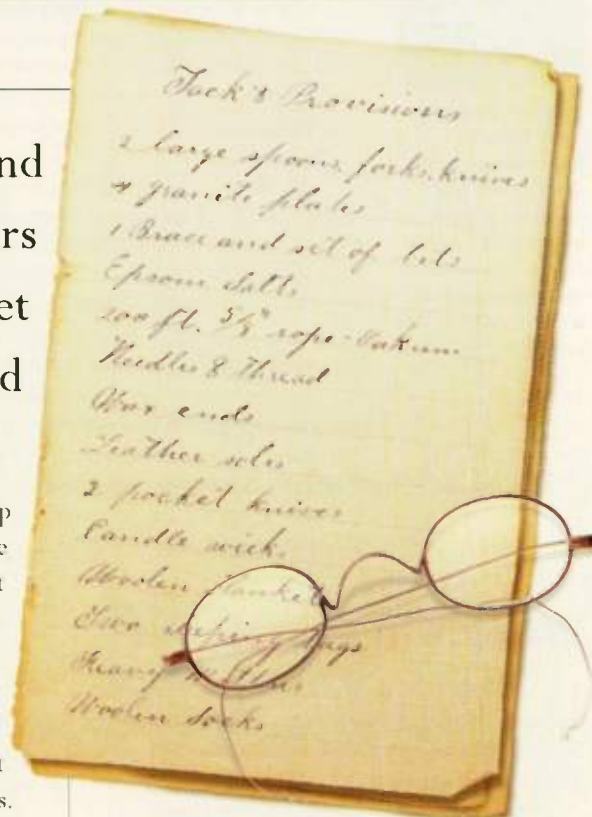 nd
rs
et
d
p
e
t
t
s.
Jack's Provisions
2 large spoons, forks, knives
4 granite plates
1 Brace and set of bits
Epsom Salts
200 ft. 5/8" rope - Oakum
Needles & Thread
Wax ends
Leather soles
2 pocket knives
Candle wicks
Woolen blankets
Two sleeping bags
Heavy mittens
Woolen Socks